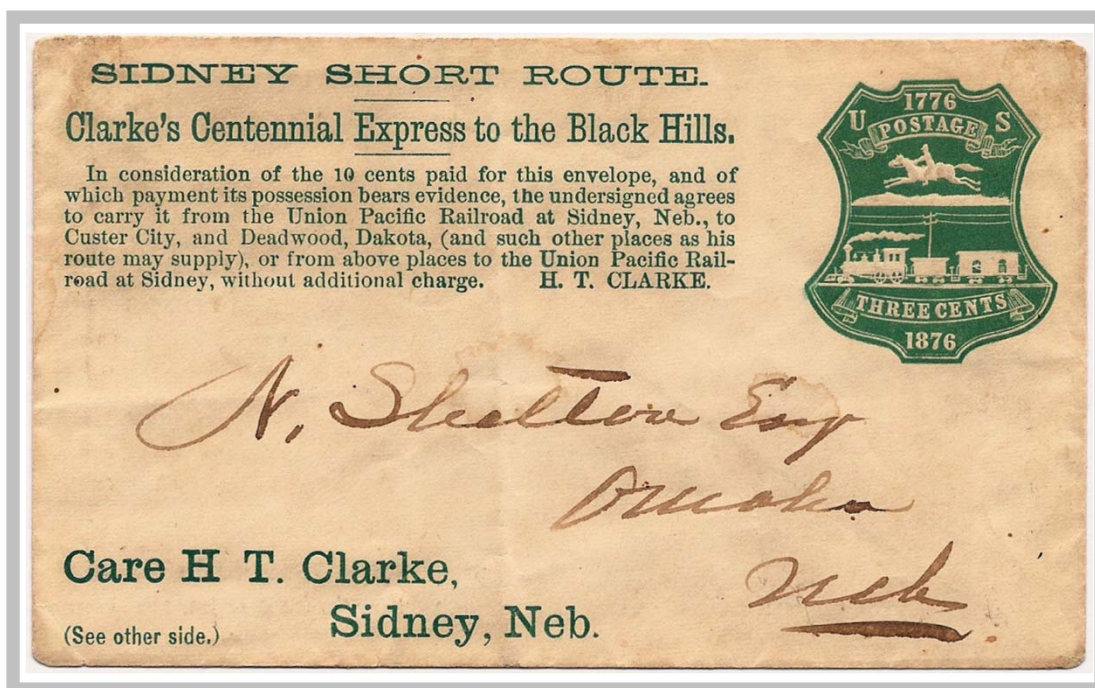 SIDNEY SHORT ROUTE.
Clarke's Centennial Express to the Black Hills.
In consideration of the 10 cents paid for this envelope, and of
which payment its possession bears evidence, the undersigned agrees
to carry it from the Union Pacific Railroad at Sidney, Neb., to
Custer City, and Deadwood, Dakota, (and such other places as his
route may supply), or from above places to the Union Pacific Rail-
road at Sidney, without additional charge. H. T. CLARKE.
1776
U POSTAGE S
THREE CENTS
1876
N. Shelton Esq
Omaha
Neb
Care H T. Clarke,
Sidney, Neb.
(See other side.)